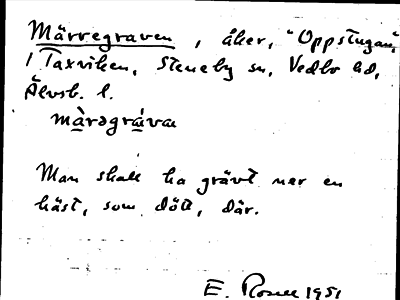 Märregraven, åker, "Oppstugan",
1 Taxviken, Steneby sn, Vedbo hd,
Älvsb. l.
màrəgrávan
Man skall ha grävt ner en
häst, som dött, där.
E. Rosell 1951